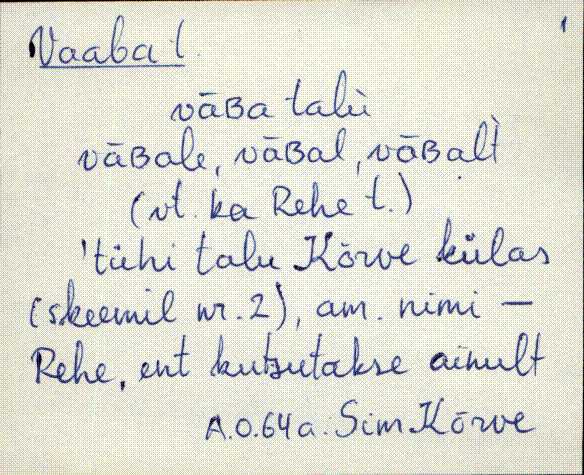 1
Vaaba t.
vāʙa talù
vāʙale, vāʙal, vāʙalt̀
(vt. ka Rehe t.)
'tühi talu Kõrve külas
(skeemil nr. 2), am. nimi —
Rehe, ent kutsutakse ainult
A.O.64a. Sim Kõrve